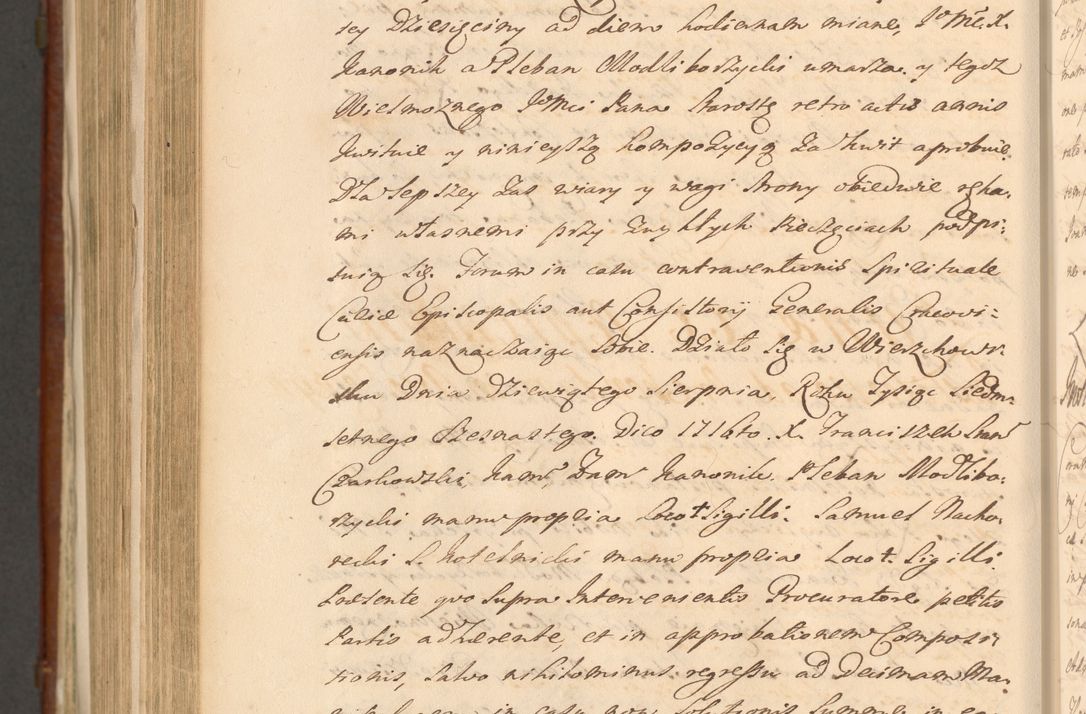 tey Dziesięciny ad diem hodiernam miane, JoMć X.
Kanonik a Pleban Modliborzycki umarza. y tegoz
Wielmoznego JoMci Pana Starostę retro actis annis
kwituie y ninieyszą kompozycyą za kwit aprobuie.
Dla lepszey zas wiary y wagi strony obiedwie ręka-
mi własnemi przy zwykłych Pieczęciach podpi-
suią się. Forum in casu contraventionis Spirituale
Curiæ Episcopalis aut Consistorij Generalis Cracovi-
ensis naznaczaiąc sobie. Działo się w Wierzchowi-
sku Dnia Dziewiątego Sierpnia, Roku Tysiąc Siedm-
setnego Szesnastego. Dico 1716to. X. Franciszek Stan
Czarkowski, Kam. Zam. Kanonik, Pleban Modlibo-
rzycki manu propria Loco † Sigilli. Samuel Nacho-
recki S. Kotelnicki manu propria Loco †. Sigilli.
Præsente quo supra Intervenientis Procuratore petitis
Partis adhærente, et in approbationem Composi-
tionis, salvo nihilominus regressu ad Decimam Ma-
in casu non solutionis summæ in